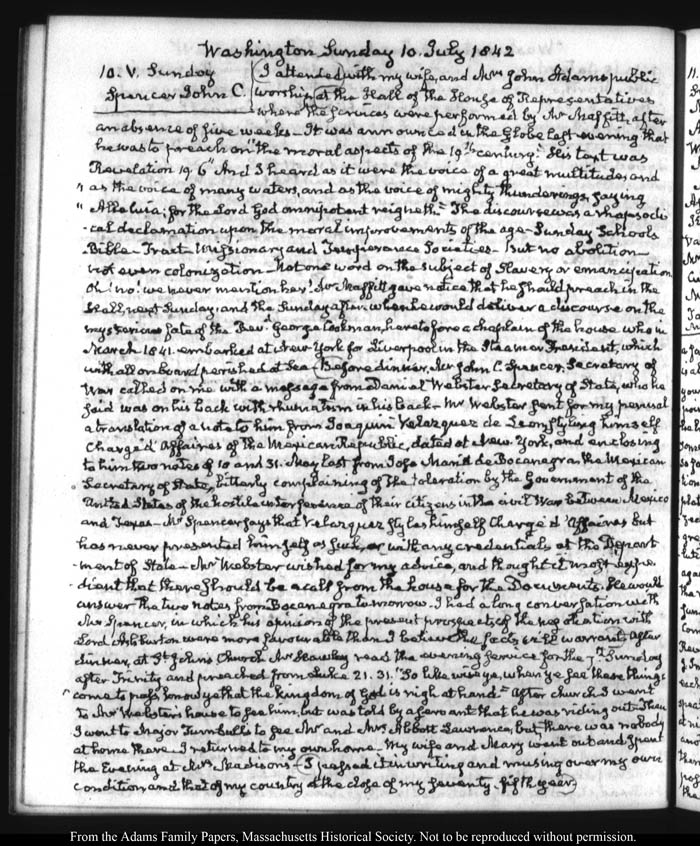 Washington Sunday 10. July 1842
10. V. Sunday
Spencer John C.
I attended with my wife, and Mrs John Adams public
worship at the Hall of the House of Representatives
where the services were performed by Mr Maffitt, after
an absence of five weeks— It was announced in the Globe last evening that
he was to preach on "the moral aspects of the 19th century." His text was
Revelation 19. 6 "And I heard as it were the voice of a great multitude, and
" as the voice of many waters, and as the voice of mighty thunderings, saying
" Alleluia; for the Lord God omnipotent reigneth." The discourse was a rhapsodi
-cal declamation upon the moral improvements of the age— Sunday Schools
Bible— Tract— Missionary and Temperance Societies— But no abolition—
not even colonization— Not one word on the subject of Slavery or emancipation
Oh! no! we never mention her! Mr Maffitt gave notice that he should preach in the
Hall next Sunday; and the Sunday after, when he would deliver a discourse on the
mysterious fate of the Revd. George Cookman, heretofore a chaplain of the house who in
March 1841. embarked at New York for Liverpool in the Steamer President, which
with all on board perished at Sea— Before dinner, Mr John C. Spencer, Secretary of
War called on me with a message from Daniel Webster Secretary of State, who he
said was on his back with rheumatism in his back— Mr Webster sent for my perusal
a translation of a note to him from Joaquin Velazquez de Leon, styling himself
Chargé d'Affaires of the Mexican Republic, dated at New York, and enclosing
to him two notes of 10 and 31. May last from Jose Maria de Bocanegra the Mexican
Secretary of State, bitterly complaining of the toleration by the Government of the
United States of the hostile interference of their citizens in the civil War between Mexico
and Texas— Mr Spencer says that Velazquez styles himself Chargé d'Affaires but
has never presented himself as such, or with any credentials at the Depart
-ment of State— Mr Webster wished for my advice, and thought it most expe-
-dient that there should be a call from the house for the Documents. He would
answer the two notes from Bocanegra to-morrow. I had a long conversation with
Mr Spencer, in which his opinions of the present prospects of the negotiation with
Lord Ashburton were more favourable than I believe the facts will warrant. After
dinner, at St. John's Church Mr Hawley read the evening service for the 7th Sunday
after Trinity and preached from Luke 21. 31. "So likewise ye, when ye see these things
" come to pass, know ye that the kingdom of God is nigh at hand" After church I went
to Mr Webster's house to see him, but was told by a servant that he was riding out— Then
I went to Major Turnbull's to see Mr and Mrs Abbott Lawrence, but there was nobody
at home there. I returned to my own home. My wife and Mary went out and spent
the Evening at Mrs Madison's— I passed it in writing and musing over my own
condition and that of my country at the close of my seventy-fifth year.
From the Adams Family Papers, Massachusetts Historical Society. Not to be reproduced without permission.